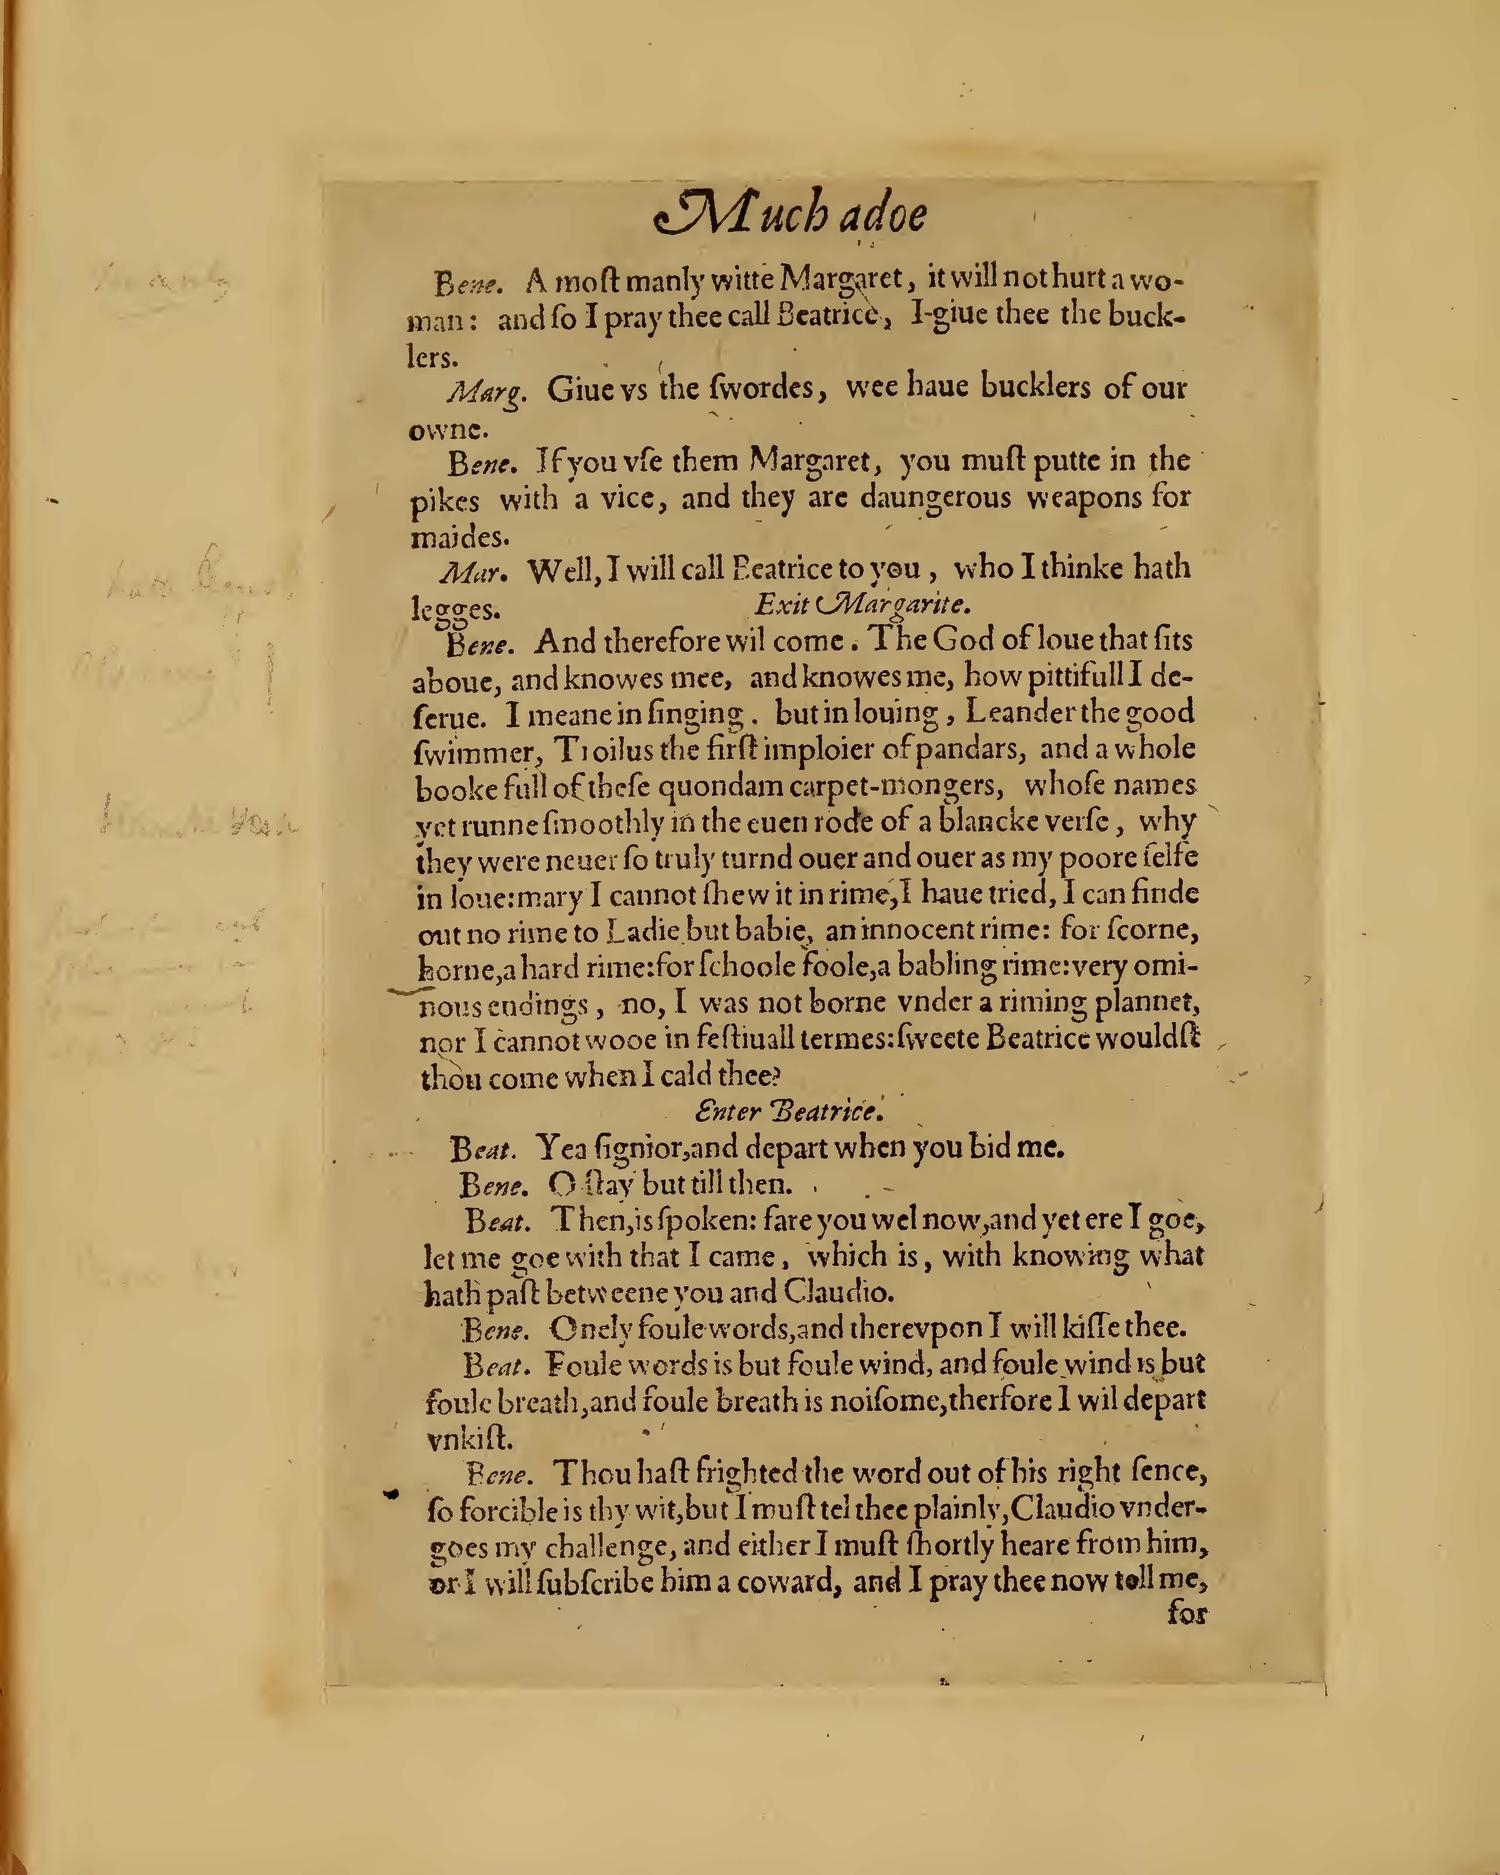 Much adoe
Bene. A moſt manly witte Margaret, it will not hurt a wo-
man: and ſo I pray thee call Beatrice, I giue thee the buck-
lers.
Marg. Giue vs the ſwordes, wee haue bucklers of our
owne.
Bene. If you vſe them Margaret, you muſt putte in the
pikes with a vice, and they are daungerous weapons for
maides.
Mar. Well, I will call Beatrice to you, who I thinke hath
legges. Exit Margarite.
Bene. And therefore wil come. The God of loue that ſits
aboue, and knowes mee, and knowes me, how pittifull I de-
ſerue. I meane in ſinging. but in louing, Leander the good
ſwimmer, Troilus the firſt imploier of pandars, and a whole
booke full of theſe quondam carpet-mongers, whoſe names
yet runne ſmoothly in the euen rode of a blancke verſe, why
they were neuer ſo truly turnd ouer and ouer as my poore ſelfe
in loue: mary I cannot ſhew it in rime, I haue tried, I can finde
out no rime to Ladie but babie, an innocent rime: for ſcorne,
horne, a hard rime: for ſchoole foole, a babling rime: very omi-
nous endings, no, I was not borne vnder a riming plannet,
nor I cannot wooe in feſtiuall termes: ſweete Beatrice wouldſt
thou come when I cald thee?
Enter Beatrice.
Beat. Yea ſignior, and depart when you bid me.
Bene. O ſtay but till then.
Beat. Then, is ſpoken: fare you wel now, and yet ere I goe,
let me goe with that I came, which is, with knowing what
hath paſt betweene you and Claudio.
Bene. Onely foule words, and therevpon I will kiſſe thee.
Beat. Foule words is but foule wind, and foule wind is but
foule breath, and foule breath is noiſome, therfore I wil depart
vnkiſt.
Bene. Thou haſt frighted the word out of his right ſence,
ſo forcible is thy wit, but I muſt tel thee plainly, Claudio vnder-
goes my challenge, and either I muſt ſhortly heare from him,
or I will ſubſcribe him a coward, and I pray thee now tell me,
for